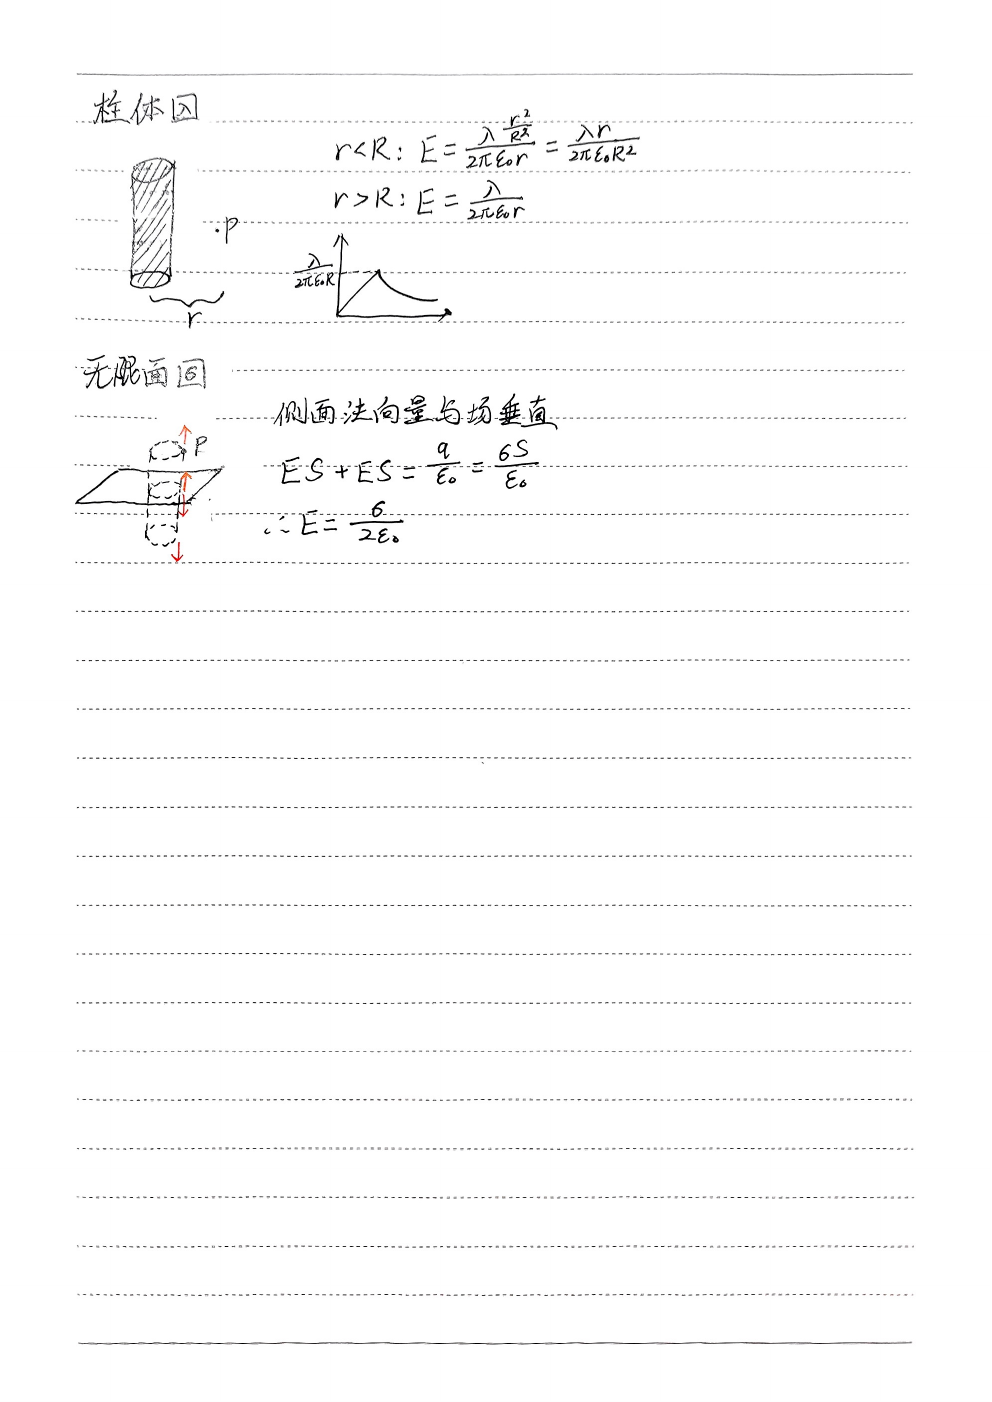 柱体 λ
r<R: E = \frac{λ\frac{r²}{R²}}{2πε₀r} = \frac{λr}{2πε₀R²}
r>R: E = \frac{λ}{2πε₀r}
.P
\frac{λ}{2πε₀R}
r
无限面 σ
侧面法向量与场垂直
P
ES + ES = \frac{q}{ε₀} = \frac{σS}{ε₀}
∴ E = \frac{σ}{2ε₀}